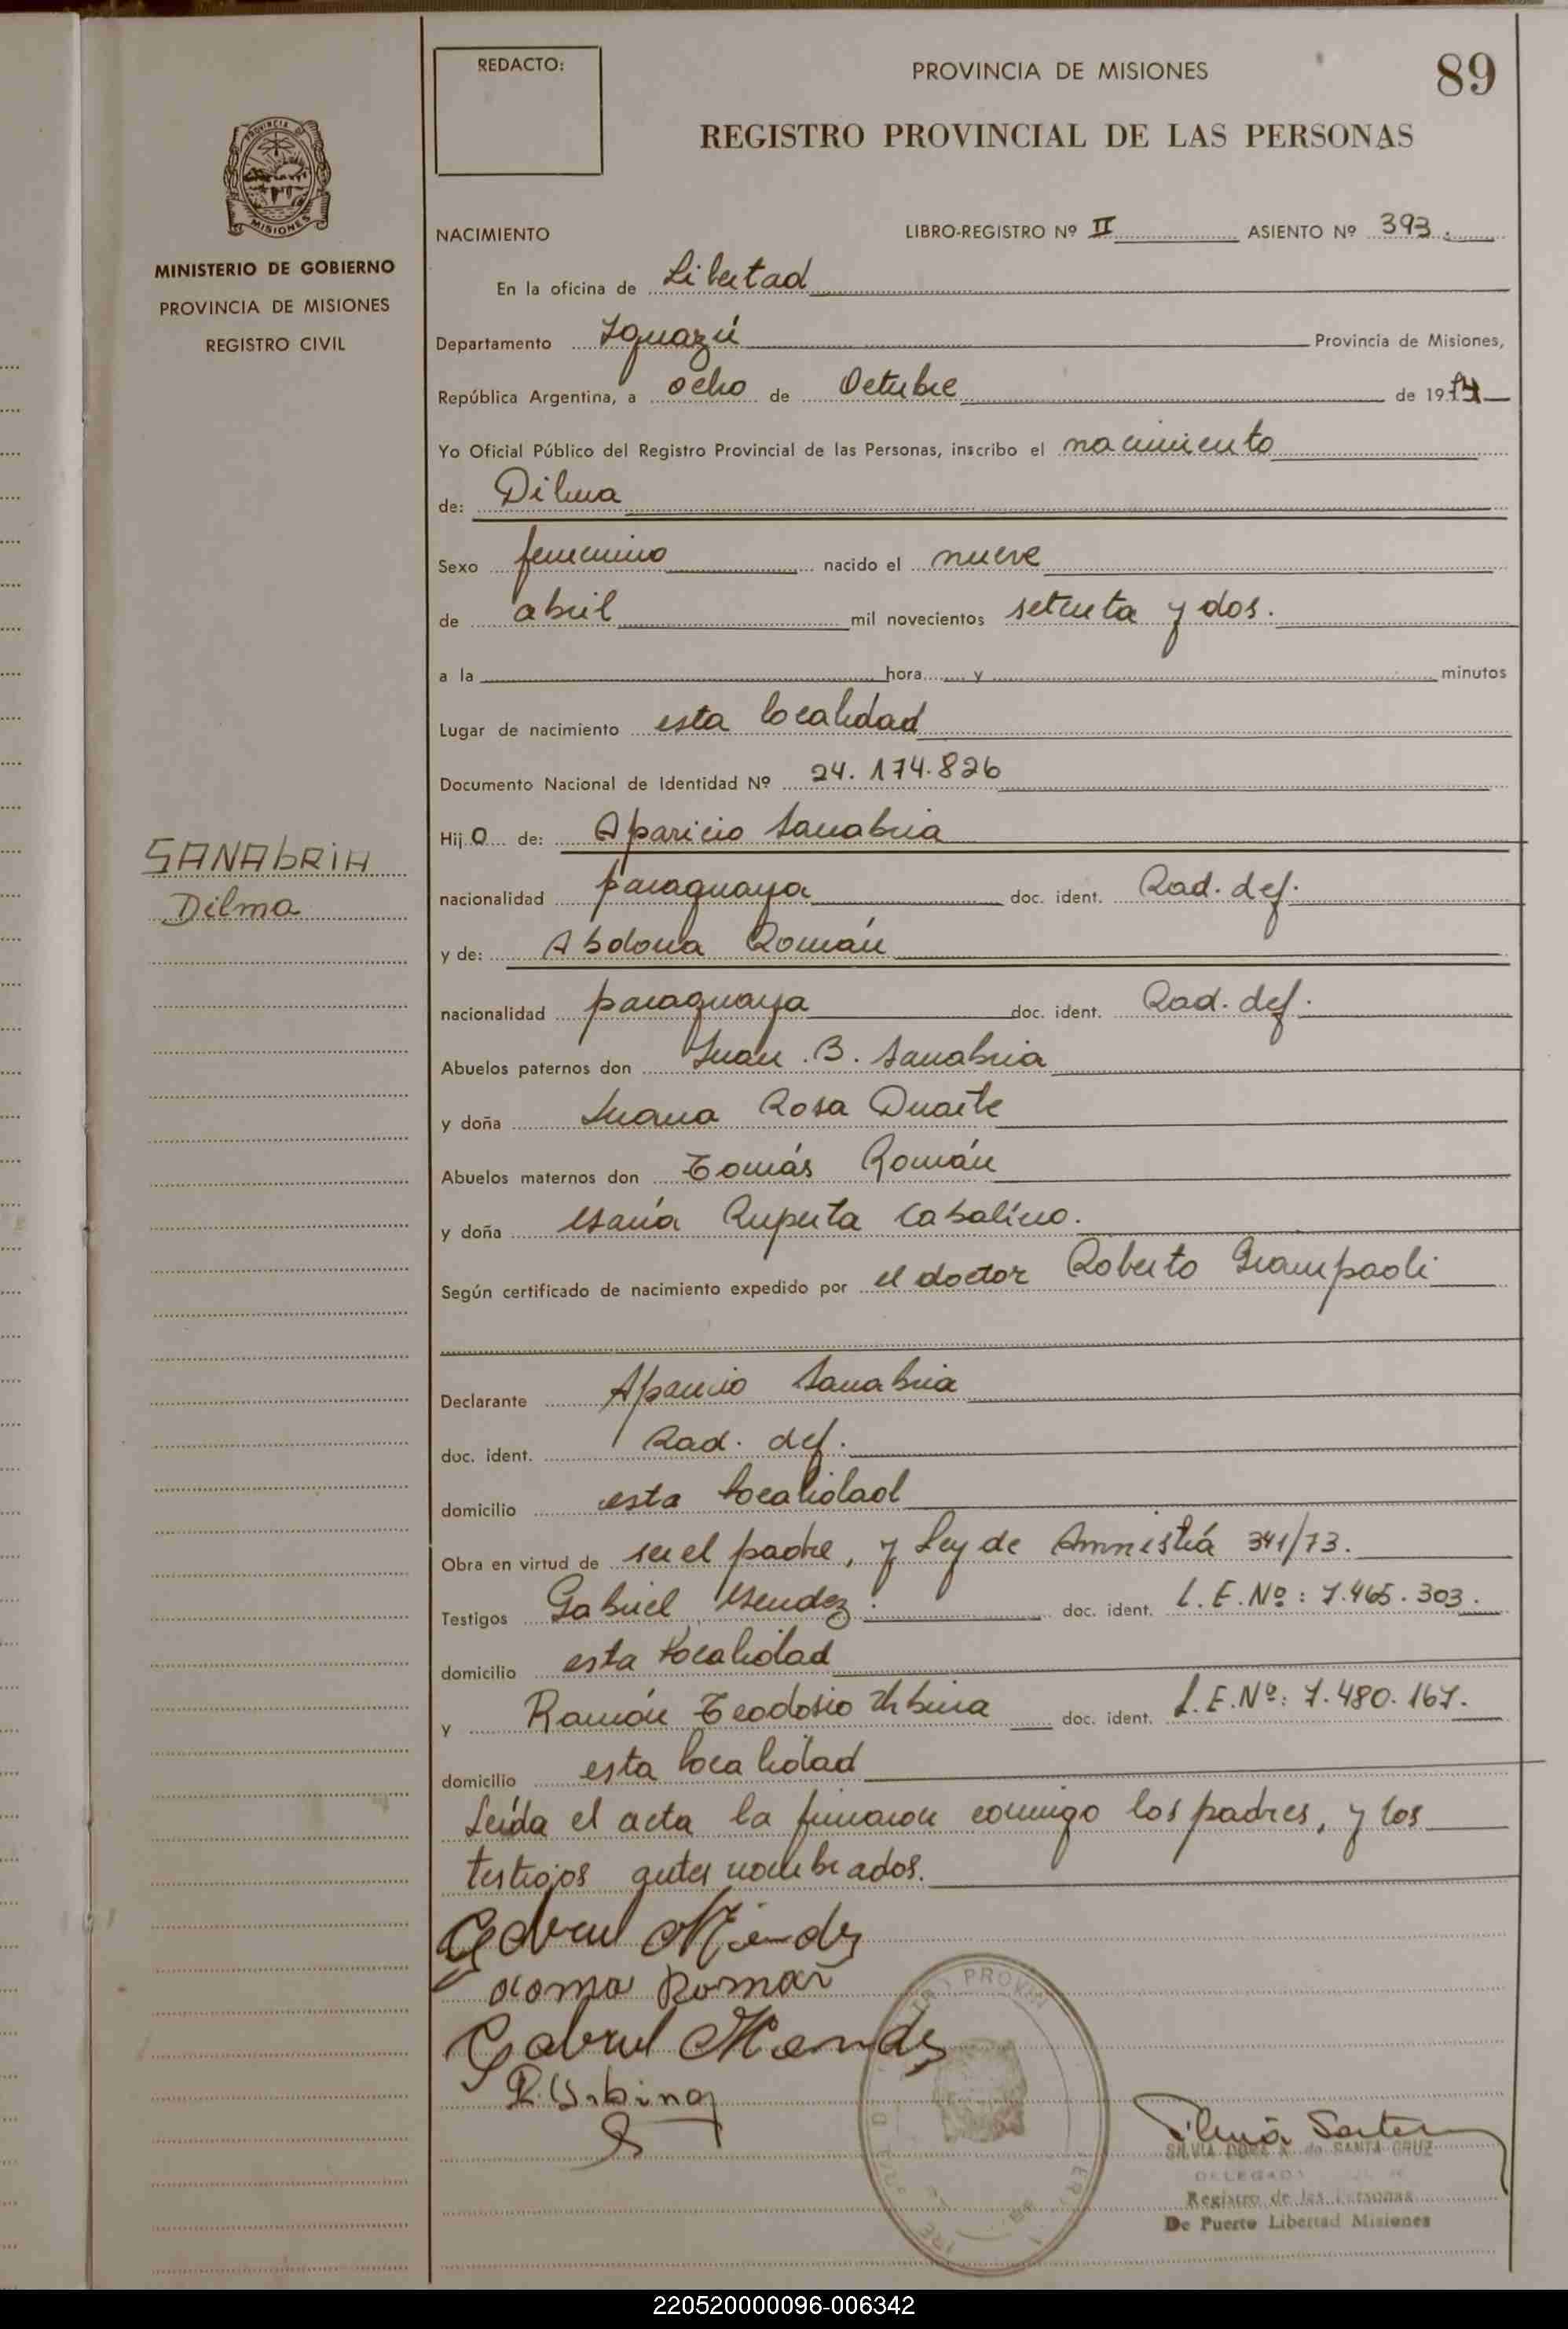 REDACTO:
PROVINCIA DE MISIONES
89
REGISTRO PROVINCIAL DE LAS PERSONAS
PROVINCIA DE
MISIONES
MINISTERIO DE GOBIERNO
PROVINCIA DE MISIONES
REGISTRO CIVIL
SANAbRiA
Dilma
NACIMIENTO LIBRO-REGISTRO Nº II ASIENTO Nº 393.
En la oficina de Libertad
Departamento Iguazú Provincia de Misiones,
República Argentina, a ocho de Octubre de 1974
Yo Oficial Público del Registro Provincial de las Personas, inscribo el nacimiento
de: Dilma
Sexo femenino nacido el nueve
de abril mil novecientos setenta y dos.
a la hora y minutos
Lugar de nacimiento esta localidad
Documento Nacional de Identidad Nº 24.174.826
Hij a de: Aparicio Sanabria
nacionalidad paraguaya doc. ident. Rad. def.
y de: Abdona Román
nacionalidad paraguaya doc. ident. Rad. def.
Abuelos paternos don Juan B. Sanabria
y doña Juana Rosa Duarte
Abuelos maternos don Tomás Román
y doña María Ruperta Cabalino.
Según certificado de nacimiento expedido por el doctor Roberto Giampaoli
Declarante Aparicio Sanabria
doc. ident. Rad. def.
domicilio esta localidad
Obra en virtud de ser el padre, y Ley de Amnistiá 341/73.
Testigos Gabriel Mendez. doc. ident. L.E.Nº: 7.465.303.
domicilio esta localidad
y Ramón Teodosio Urbina doc. ident. L.E.Nº: 7.480.167.
domicilio esta localidad
Leída el acta la firmaron conmigo los padres, y los
testigos antes nombrados.
Gabriel Mendez
Roman
Gabriel Mendez
R. Urbina
SILVIA DORA A. de SANTA CRUZ
DELEGADA
Registro de las Personas
De Puerto Libertad Misiones
220520000096-006342